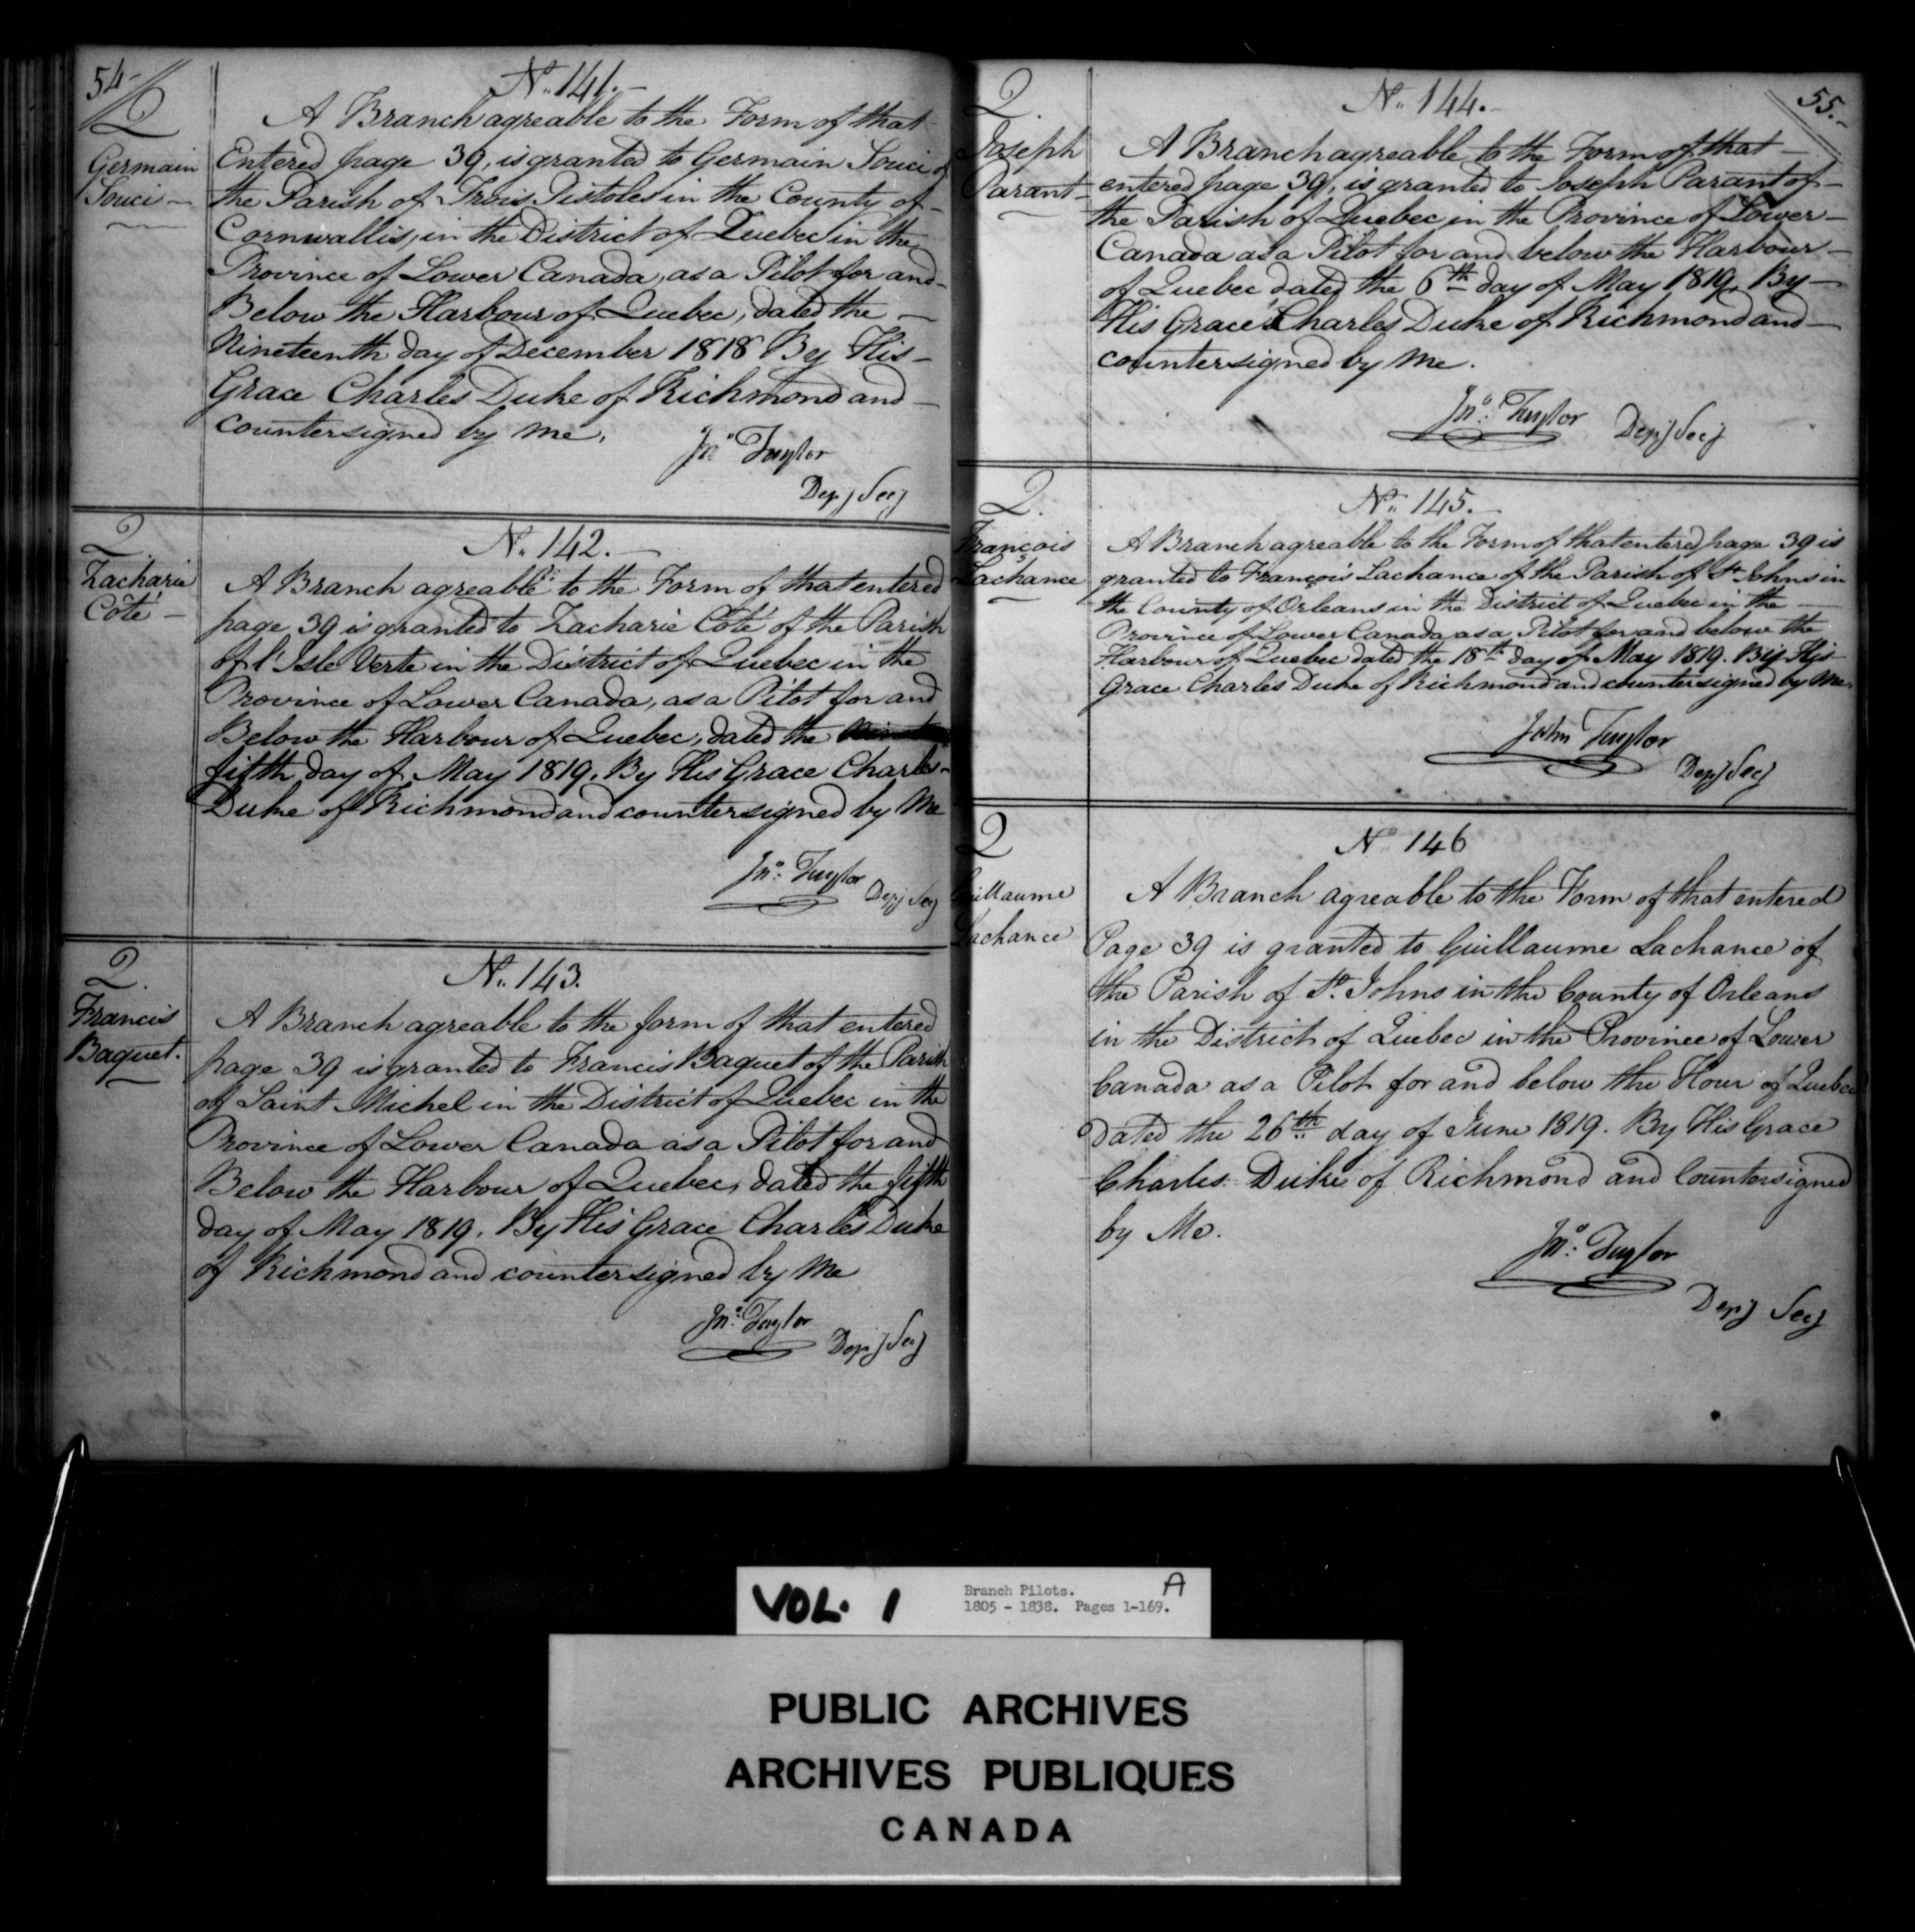 54
Q
Germain
Souci —
No. 141. —
A Branch agreable to the Form of that
Entered page 39, is granted to Germain Souci of
the Parish of Trois Pistoles in the County of —
Cornwallis, in the District of Quebec in the
Province of Lower Canada, as a Pilot for and
Below the Harbour of Quebec, dated the —
Nineteenth day of December 1818 By His —
Grace Charles Duke of Richmond and —
countersigned by me.
Jno Taylor
Depy Secy
Q
Zacharie
Côté —
No. 142. —
A Branch agreable to the Form of that entered
page 39 is granted to Zacharie Côté of the Parish
of l'Isle Verte in the District of Quebec in the
Province of Lower Canada, as a Pilot for and
Below the Harbour of Quebec, dated the
fifth day of May 1819. By His Grace Charles
Duke of Richmond and countersigned by Me
Jno. Taylor
Depy Secy
Q.
Francis
Baquet.
No. 143.
A Branch agreable to the form of that entered
page 39 is granted to Francis Baquet of the Parish
of Saint Michel in the District of Quebec in the
Province of Lower Canada as a Pilot for and
Below the Harbour of Quebec, dated the fifth
day of May 1819. By His Grace Charles Duke
of Richmond and countersigned by Me
Jno. Taylor
Depy Secy
55.
Q
Joseph
Parant —
No. 144. —
A Branch agreable to the Form of that —
entered page 39, is granted to Joseph Parant of —
the Parish of Quebec in the Province of Lower —
Canada as a Pilot for and below the Harbour —
of Quebec dated the 6th day of May 1819. By —
His Grace Charles Duke of Richmond and —
countersigned by Me.
Jno. Taylor
Depy Secy
Q.
François
Lachance
No. 145. —
A Branch agreable to the Form of that entered page 39 is
granted to François Lachance of the Parish of St Johns in
the County of Orleans in the District of Quebec in the —
Province of Lower Canada as a Pilot for and below the
Harbour of Quebec dated the 18th day of May 1819. By His
Grace Charles Duke of Richmond and countersigned by Me
John Taylor
Depy Secy
Q
Guillaume
Lachance
No 146
A Branch agreable to the Form of that entered
Page 39 is granted to Guillaume Lachance of
the Parish of St. Johns in the County of Orleans
in the District of Quebec in the Province of Lower
Canada as a Pilot for and below the Hour of Quebec
Dated the 26th day of June 1819. By His Grace
Charles Duke of Richmond and Countersigned
by Me.
Jno. Taylor
Depy Secy
VOL. 1
Branch Pilots. A
1805 - 1838. Pages 1-169.
PUBLIC ARCHIVES
ARCHIVES PUBLIQUES
CANADA